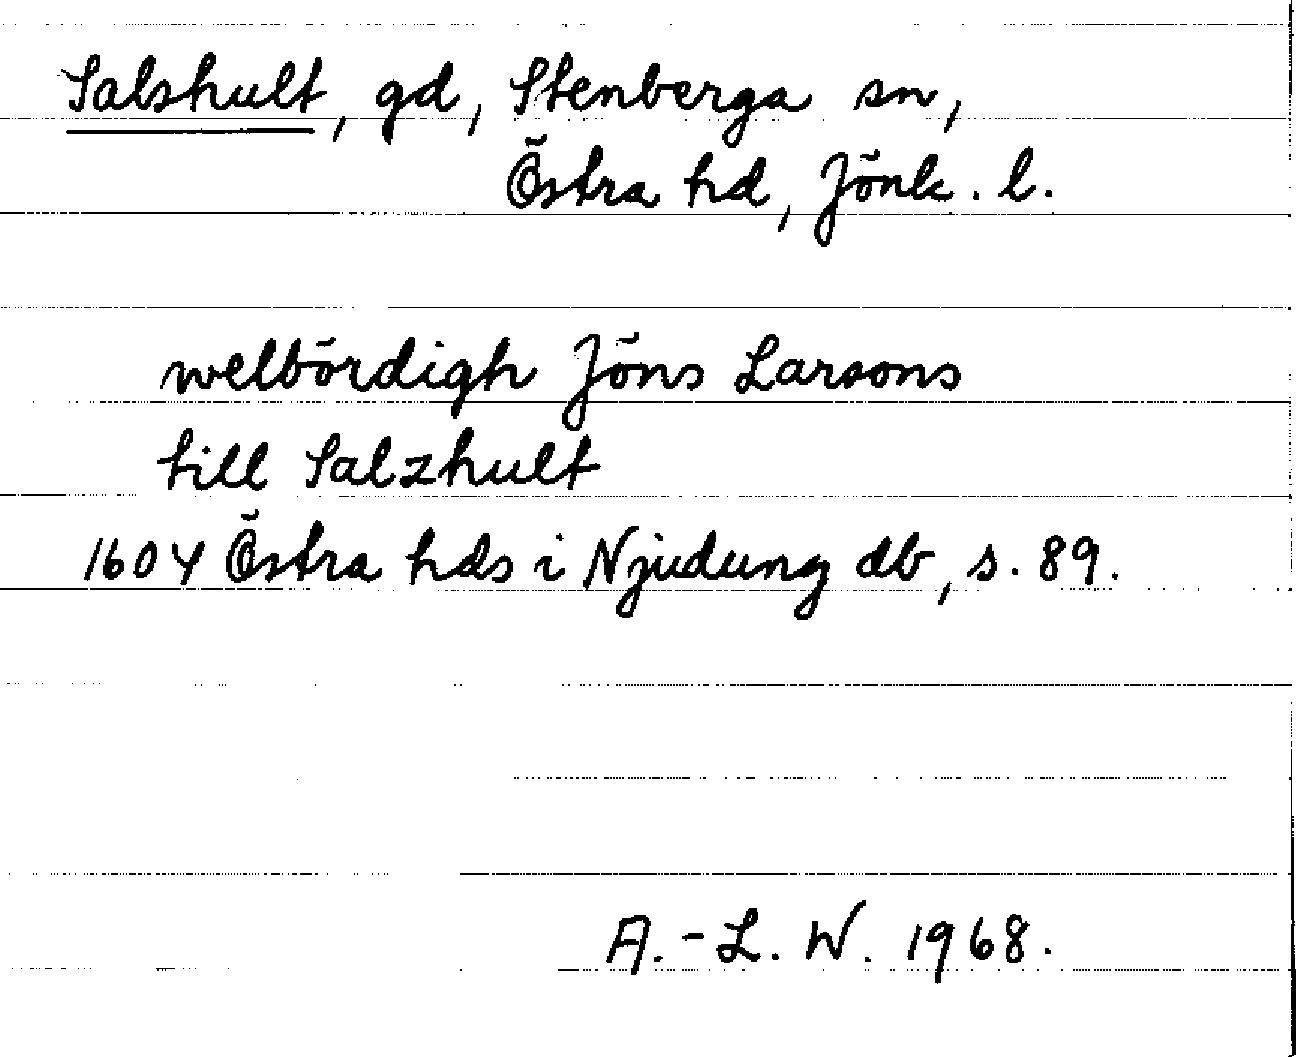 Salshult, gd, Stenberga sn,
Östra hd, Jönk. l.
welbördigh Jöns Larsons
till Salzhult
1604 Östra hds i Njudung db, s. 89.
A.-L. W. 1968.